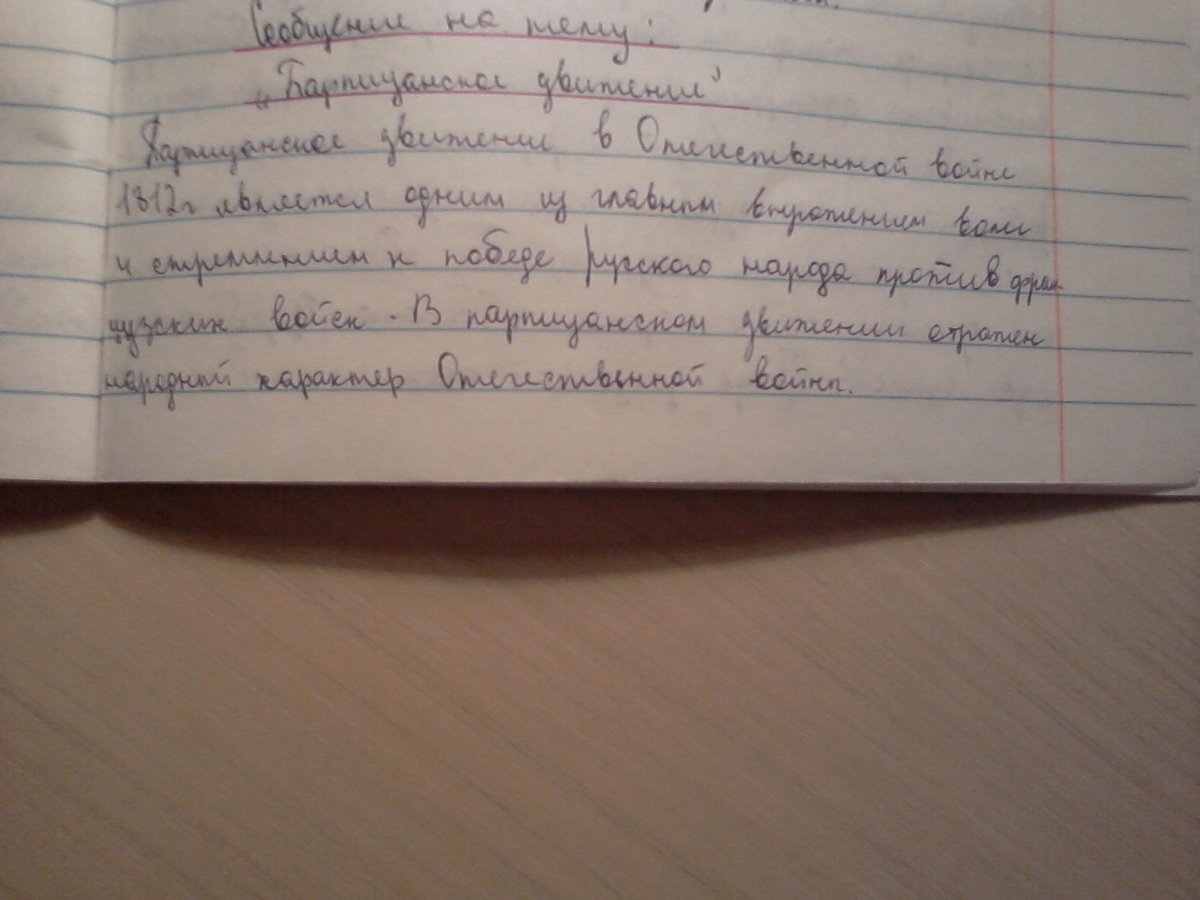 Сообщение на тему:
„Партизанское движение"
Партизанское движение в Отечественной войне
1812г является одним из главным выражением воли
и стремлением к победе русского народа против фран
цузских войск. В партизанском движении отражен
народный характер Отечественной войны.